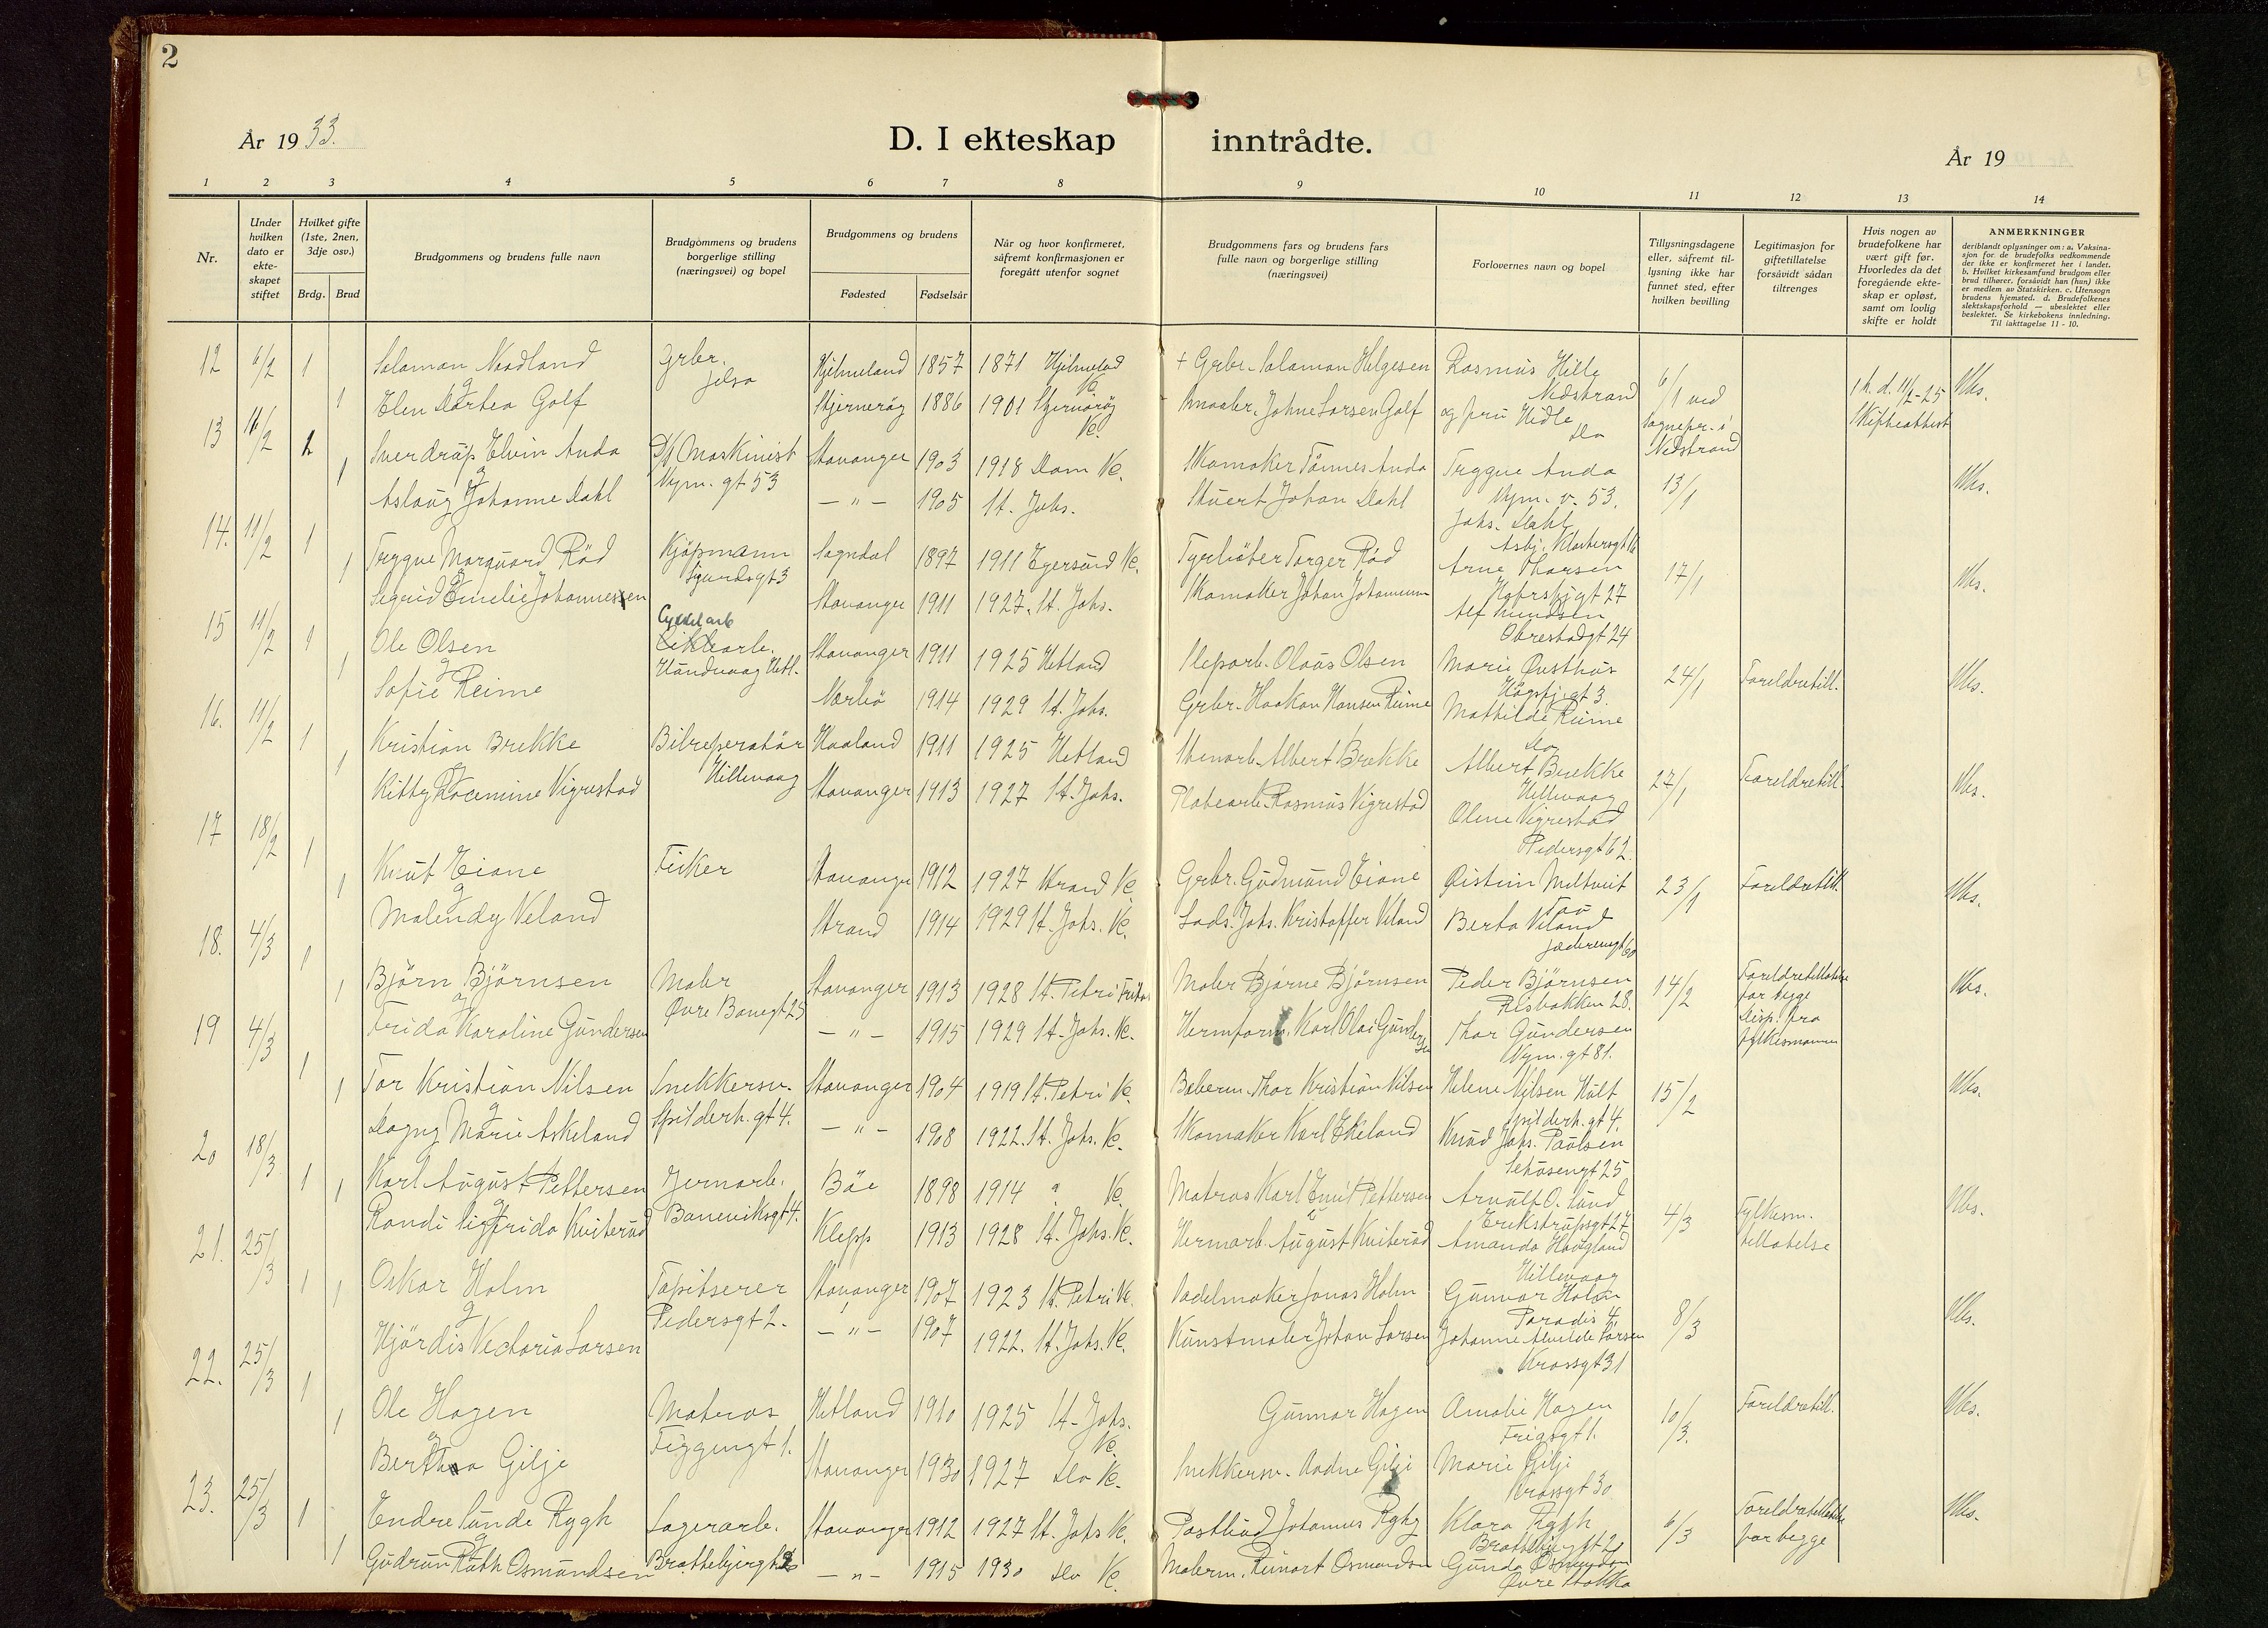 2
År 1933.
D. I ekteskap inntrådte.
År 19
1 2 3 4 5 6 7 8 9 10 11 12 13 14
Nr.
Under hvilken dato er ekte-skapet stiftet
Hvilket gifte (1ste, 2nen, 3dje osv.)
Brdg. Brud
Brudgommens og brudens fulle navn
Brudgommens og brudens borgerlige stilling (næringsvei) og bopel
Brudgommens og brudens
Fødested Fødselsår
Når og hvor konfirmeret, såfremt konfirmasjonen er foregått utenfor sognet
Brudgommens fars og brudens fars fulle navn og borgerlige stilling (næringsvei)
Forlovernes navn og bopel
Tillysningsdagene eller, såfremt til-lysning ikke har funnet sted, efter hvilken bevilling
Legitimasjon for giftetillatelse forsåvidt sådan tiltrenges
Hvis nogen av brudefolkene har vært gift før. Hvorledes da det foregående ekte-skap er opløst, samt om lovlig skifte er holdt
ANMERKNINGER
deriblandt oplysninger om: a. Vaksina-sjon for de brudefolks vedkommende der ikke er konfirmeret her i landet. b. Hvilket kirkesamfund brudgom eller brud tilhører, forsåvidt han (hun) ikke er medlem av Statskirken. c. Utensogn brudens hjemsted. d. Brudefolkenes slektskapsforhold — ubeslektet eller beslektet. Se kirkebokens innledning. Til iakttagelse 11 - 10.
12 6/2 1 Salamon Nordland Grbr. Jelsa Hjelmeland 1857 1871 + Grbr. Salamon Helgesen Rasmus Hille Nedstrand 6/1 ved sognepr. i Nedstrand Ubs.
1 Elen Dortea Golf 1886 1901 Johne Larsen Golf
13 11/2 Sverdrup Elvin Anda Maskinist Nym. gt 53 Stavanger 1903 1918 Dom K. Skomaker Tönnes Anda Trygve Anda Nym. v. 53. 13/1 Ubs.
1 Aslaug Johanne Dahl — " — 1905 St. Johs. Stuert Johan Dahl Johs. Dahl
14. 11/2 1 Trygve Marquard Röd Kjöpmann Sogndal 1897 1911 Egersund K. Fyrböter Torger Röd Arne Thorsen 17/1 Ubs.
1 Sigrid Emelie Johannessen Stavanger 1911 1927. St. Johs. Skomaker Johan Johannessen Obrestadgt 24
15 11/2 1 Ole Olsen Cykkelarb Hundvaag Hetl. Stavanger 1911 1925 Hetland Olaus Olsen Marie Østhus Høgsfj. gt 3. 24/1 Foreldretill. Ubs.
1 Sofie Reime Nærbö 1914 1929 St. Johs. Grbr. Haakon Hansen Reime Mathilde Reime do
16. 11/2 1 Kristian Brekke Bilreperatör Hillevaag Haaland 1911 1925 Hetland Albert Brekke Albert Brekke Hillevaag 27/1 Foreldretill. Ubs.
1 Kitty Vigrestad Stavanger 1913 1927 St. Johs. Rasmus Vigrestad Oline Vigrestad Pedersgt 62.
17 18/2 1 Knut Eiane Fisker Stavanger 1912 1927 Strand K. Grbr. Gudmund Eiane Øistein Meltveit Tau 23/1 Foreldretill. Ubs.
1 Malendy Veland Strand 1914 1929 St. Johs. K. Lods. Johs. Kristoffer Veland Berta Veland
18. 4/3 1 Björn Björnsen Maler Øvre Banegt 25 Stavanger 1913 1928 St. Petri Maler Bjarne Bjørnsen Peder Bjørnsen Risbakken 28. 14/2 Foreldretillatelse for begge Disp. fra fylkesmannen Ubs.
1 Frida Karoline Gundersen — " — 1915 1929 St. Johs. K. Hermform. Karl Olai Gundersen Thor Gundersen Nym. gt 81.
19 4/3 1 Tor Kristian Nilsen Snekkersv. Spilderh. gt 4. Stavanger 1904 1919 St. Petri K. Thor Kristian Nilsen Helene Nilsen Hult Spilderh. gt 4. 15/2 Ubs.
1 Dagny Marie Askeland — " — 1908 1922. St. Johs. K. Skomaker Karl Knud Johs. Paulsen
20 18/3 1 1 Karl August Pettersen Jernarb. Baneviksgt 4. Böe 1898 1914 K. Matros Karl Emil Pettersen Arnulf O. Lund Erikstrupsgt 27 4/3 Fylkesm. tillatelse Ubs.
Randi Sigfrida Kviterud Klepp 1913 1928 St. Johs. K. Hermarb. August Kviterud Amanda Haugland Hillevaag
21. 25/3 1 1 Oskar Holm Tapitserer Pedersgt 2. Stavanger 1907 1923 St. Petri K. Sadelmaker Jonas Holm Gunvor Holm Paradis 4. 8/3 Ubs.
Hjördis Vectoria Larsen — " — 1907 1922. St. Johs. K. Kunstmaler Johan Larsen Johanne Alvilde Larsen Krossgt 31
22. 25/3 1 Ole Hagen Matros Figgengt 1. Hetland 1910 1925 St. Johs. K. Gunnar Hagen Amalie Hagen 10/3. Foreldretill. Ubs.
1 Bertha Gilje Stavanger 1930 1927 do K. Snekkersv. Aadne Gilje Marie Gilje Krossgt 30
23. 25/3 1 Endre Sunde Rygh Lagerarb. Stavanger 1912 1927 St. Johs K. Postbud Johannes Rygh Klara Rygh 6/3 Foreldretillatelse for begge Ubs.
1 Gudrun Ruth Osmundsen — " — 1915 1930 do K. Malerm. Reinart Osmundsen Gunda Osmundsen Øvre Stokka